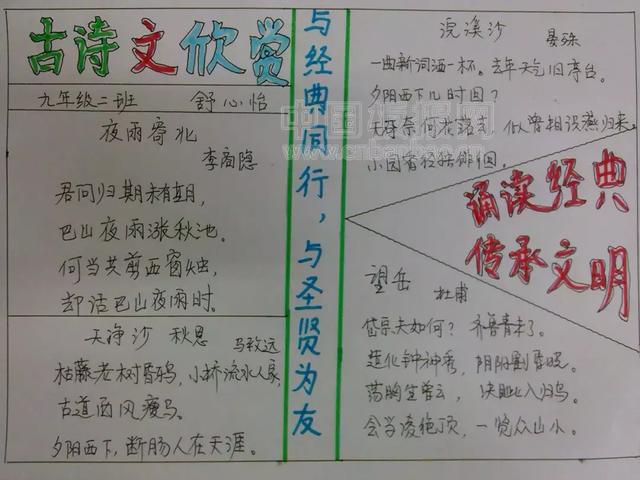 古诗文欣赏
九年级二班 舒心怡
夜雨寄北
李商隐
君问归期未有期,
巴山夜雨涨秋池。
何当共剪西窗烛,
却话巴山夜雨时。
天净沙 秋思
马致远
枯藤老树昏鸦,小桥流水人家,
古道西风瘦马。
夕阳西下,断肠人在天涯。
与经典同行,与圣贤为友
浣溪沙 晏殊
一曲新词酒一杯。去年天气旧亭台。
夕阳西下几时回?
无可奈何花落去 似曾相识燕归来。
小园香径独徘徊。
诵读经典
传承文明
望岳
杜甫
岱宗夫如何? 齐鲁青未了。
造化钟神秀, 阴阳割昏晓。
荡胸生曾云, 决眦入归鸟。
会当凌绝顶, 一览众山小。
中国板报网
www.cnbanbao.cn